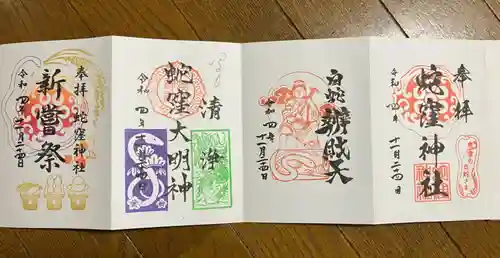 奉拝
蛇窪神社
令和四年
十一月二十四日
白蛇辨財天
令和四年
十一月二十四日
清浄
蛇窪大明神
令和四年
奉拝
蛇窪神社
新嘗祭
令和四年十一月二十四日